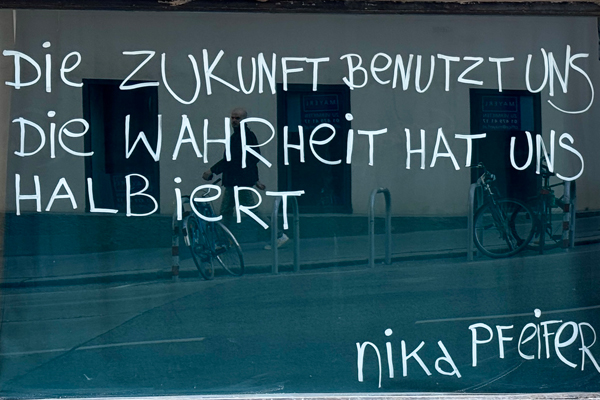 Die ZUKUNFT BENUTZT UNS
Die WAHRHEIT HAT UNS
HALBIERT
nika PFEIFER